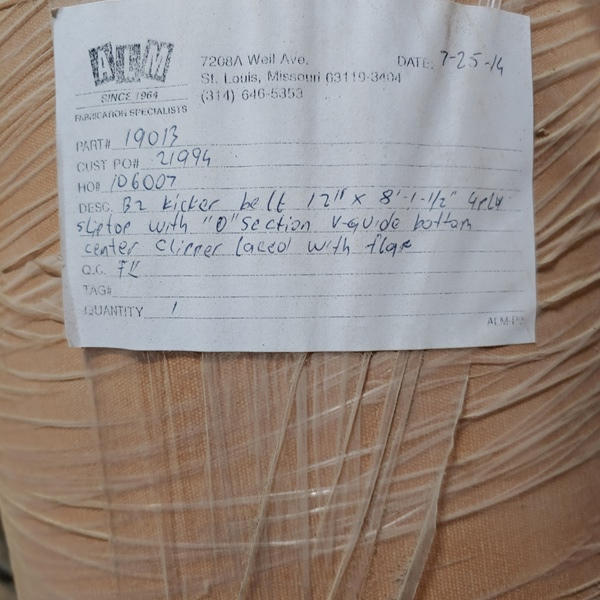 ALM
SINCE 1964
FABRICATION SPECIALISTS
7208A Weil Ave.
St. Louis, Missouri 63119-3404
(314) 646-5353
DATE: 7-25-14
PART# 19013
CUST PO# 21994
HO# 106007
DESC. B2 kicker belt 12" x 8'-1-1/2" 4ply
sliptop with "O" section V-guide bottom
center Clipper laced with flap
Q.C.
TAG#
QUANTITY 1